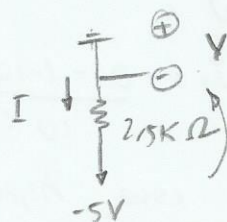 +
V
−
I
2,5K Ω
-5V